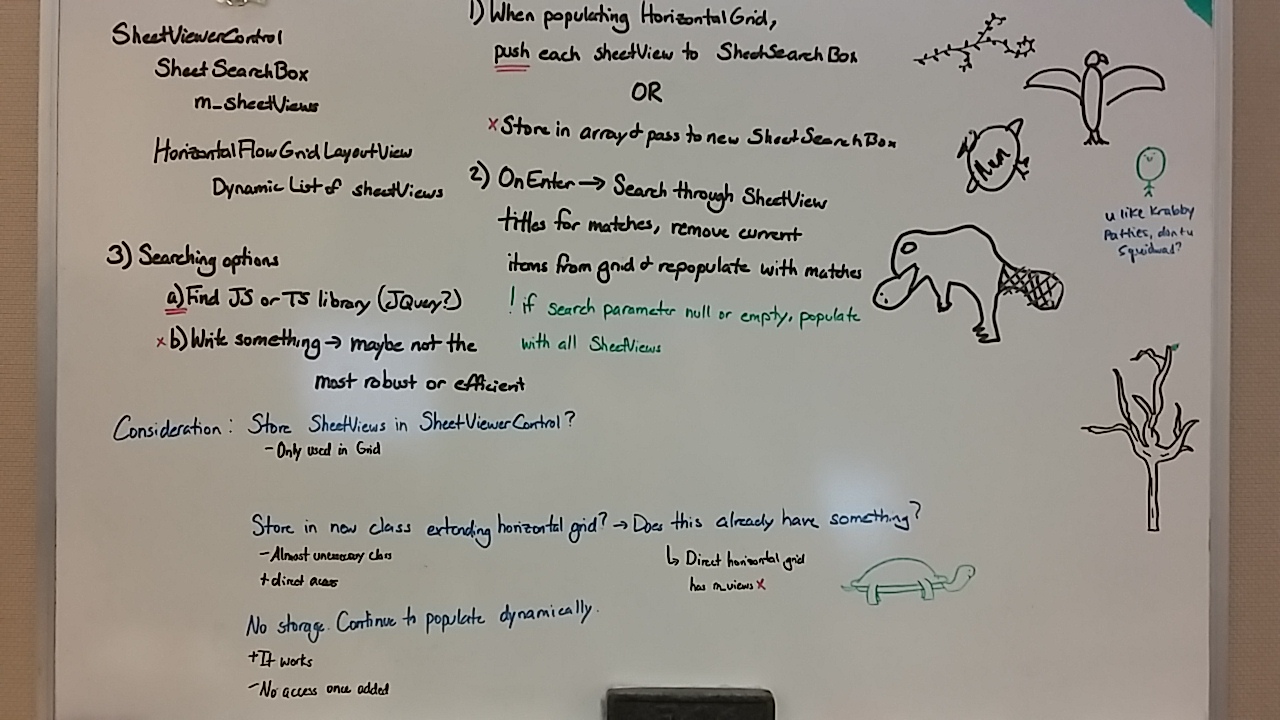 SheetViewerControl
SheetSearchBox
m_sheetViews
HorizontalFlowGridLayoutView
Dynamic List of sheetViews
1) When populating HorizontalGrid,
push each sheetView to SheetSearchBox
OR
x Store in array & pass to new SheetSearchBox
2) OnEnter → Search through SheetView
titles for matches, remove current
items from grid & repopulate with matches
! if search parameter null or empty, populate
with all SheetViews
3) Searching options
a) Find JS or TS library (JQuery?)
x b) Write something → maybe not the
most robust or efficient
Consideration: Store SheetViews in SheetViewerControl?
- Only used in Grid
Store in new class extending horizontal grid? → Does this already have something?
- Almost unecessary class
+ direct access
↳ Direct horizontal grid
has m_views x
No storage. Continue to populate dynamically.
+ It works
- No access once added
u like Krabby
Patties, dontu
Squidward?